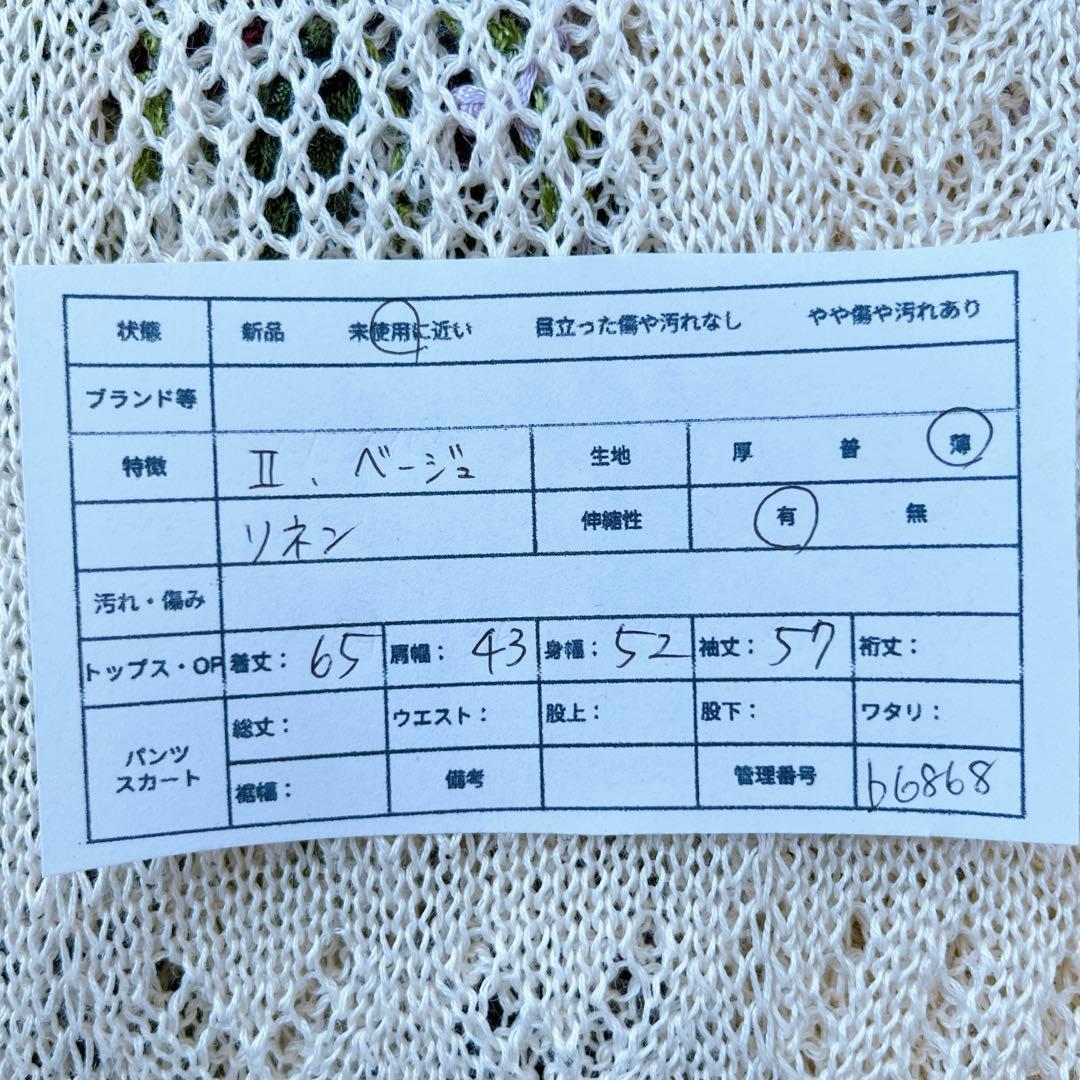 状態 新品 未使用に近い 目立った傷や汚れなし やや傷や汚れあり
ブランド等
特徴 Ⅱ、ベージュ 生地 厚 普 薄
リネン 伸縮性 有 無
汚れ・傷み
トップス・OP 着丈： 65 肩幅： 43 身幅： 52 袖丈： 57 裄丈：
パンツ スカート 総丈： ウエスト： 股上： 股下： ワタリ：
裾幅： 備考 管理番号 b6868